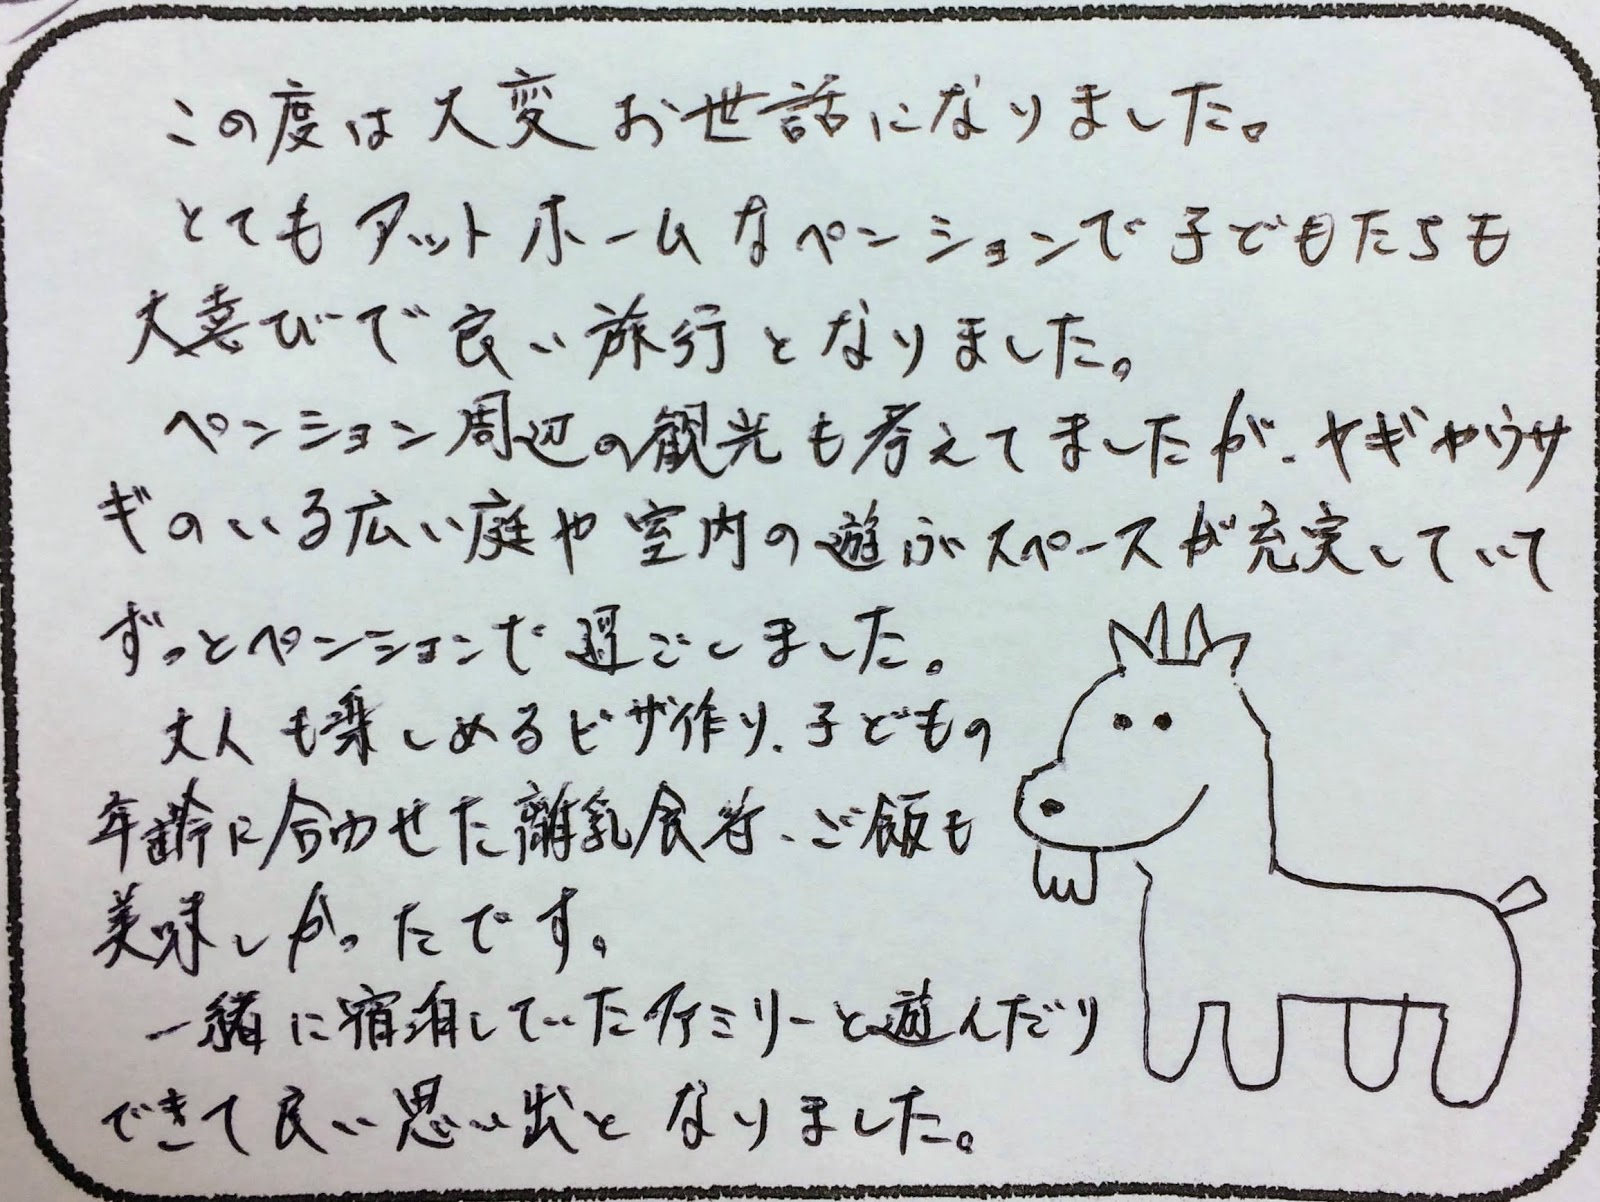 この度は大変お世話になりました。
とてもアットホームなペンションで子どもたちも
大喜びで良い旅行となりました。
ペンション周辺の観光も考えてましたが、ヤギやウサ
ギのいる広い庭や室内の遊ぶスペースが充実していて
ずっとペンションで過ごしました。
大人も楽しめるピザ作り、子どもの
年齢に合わせた離乳食等、ご飯も
美味しかったです。
一緒に宿泊していたファミリーと遊んだり
できて良い思い出となりました。